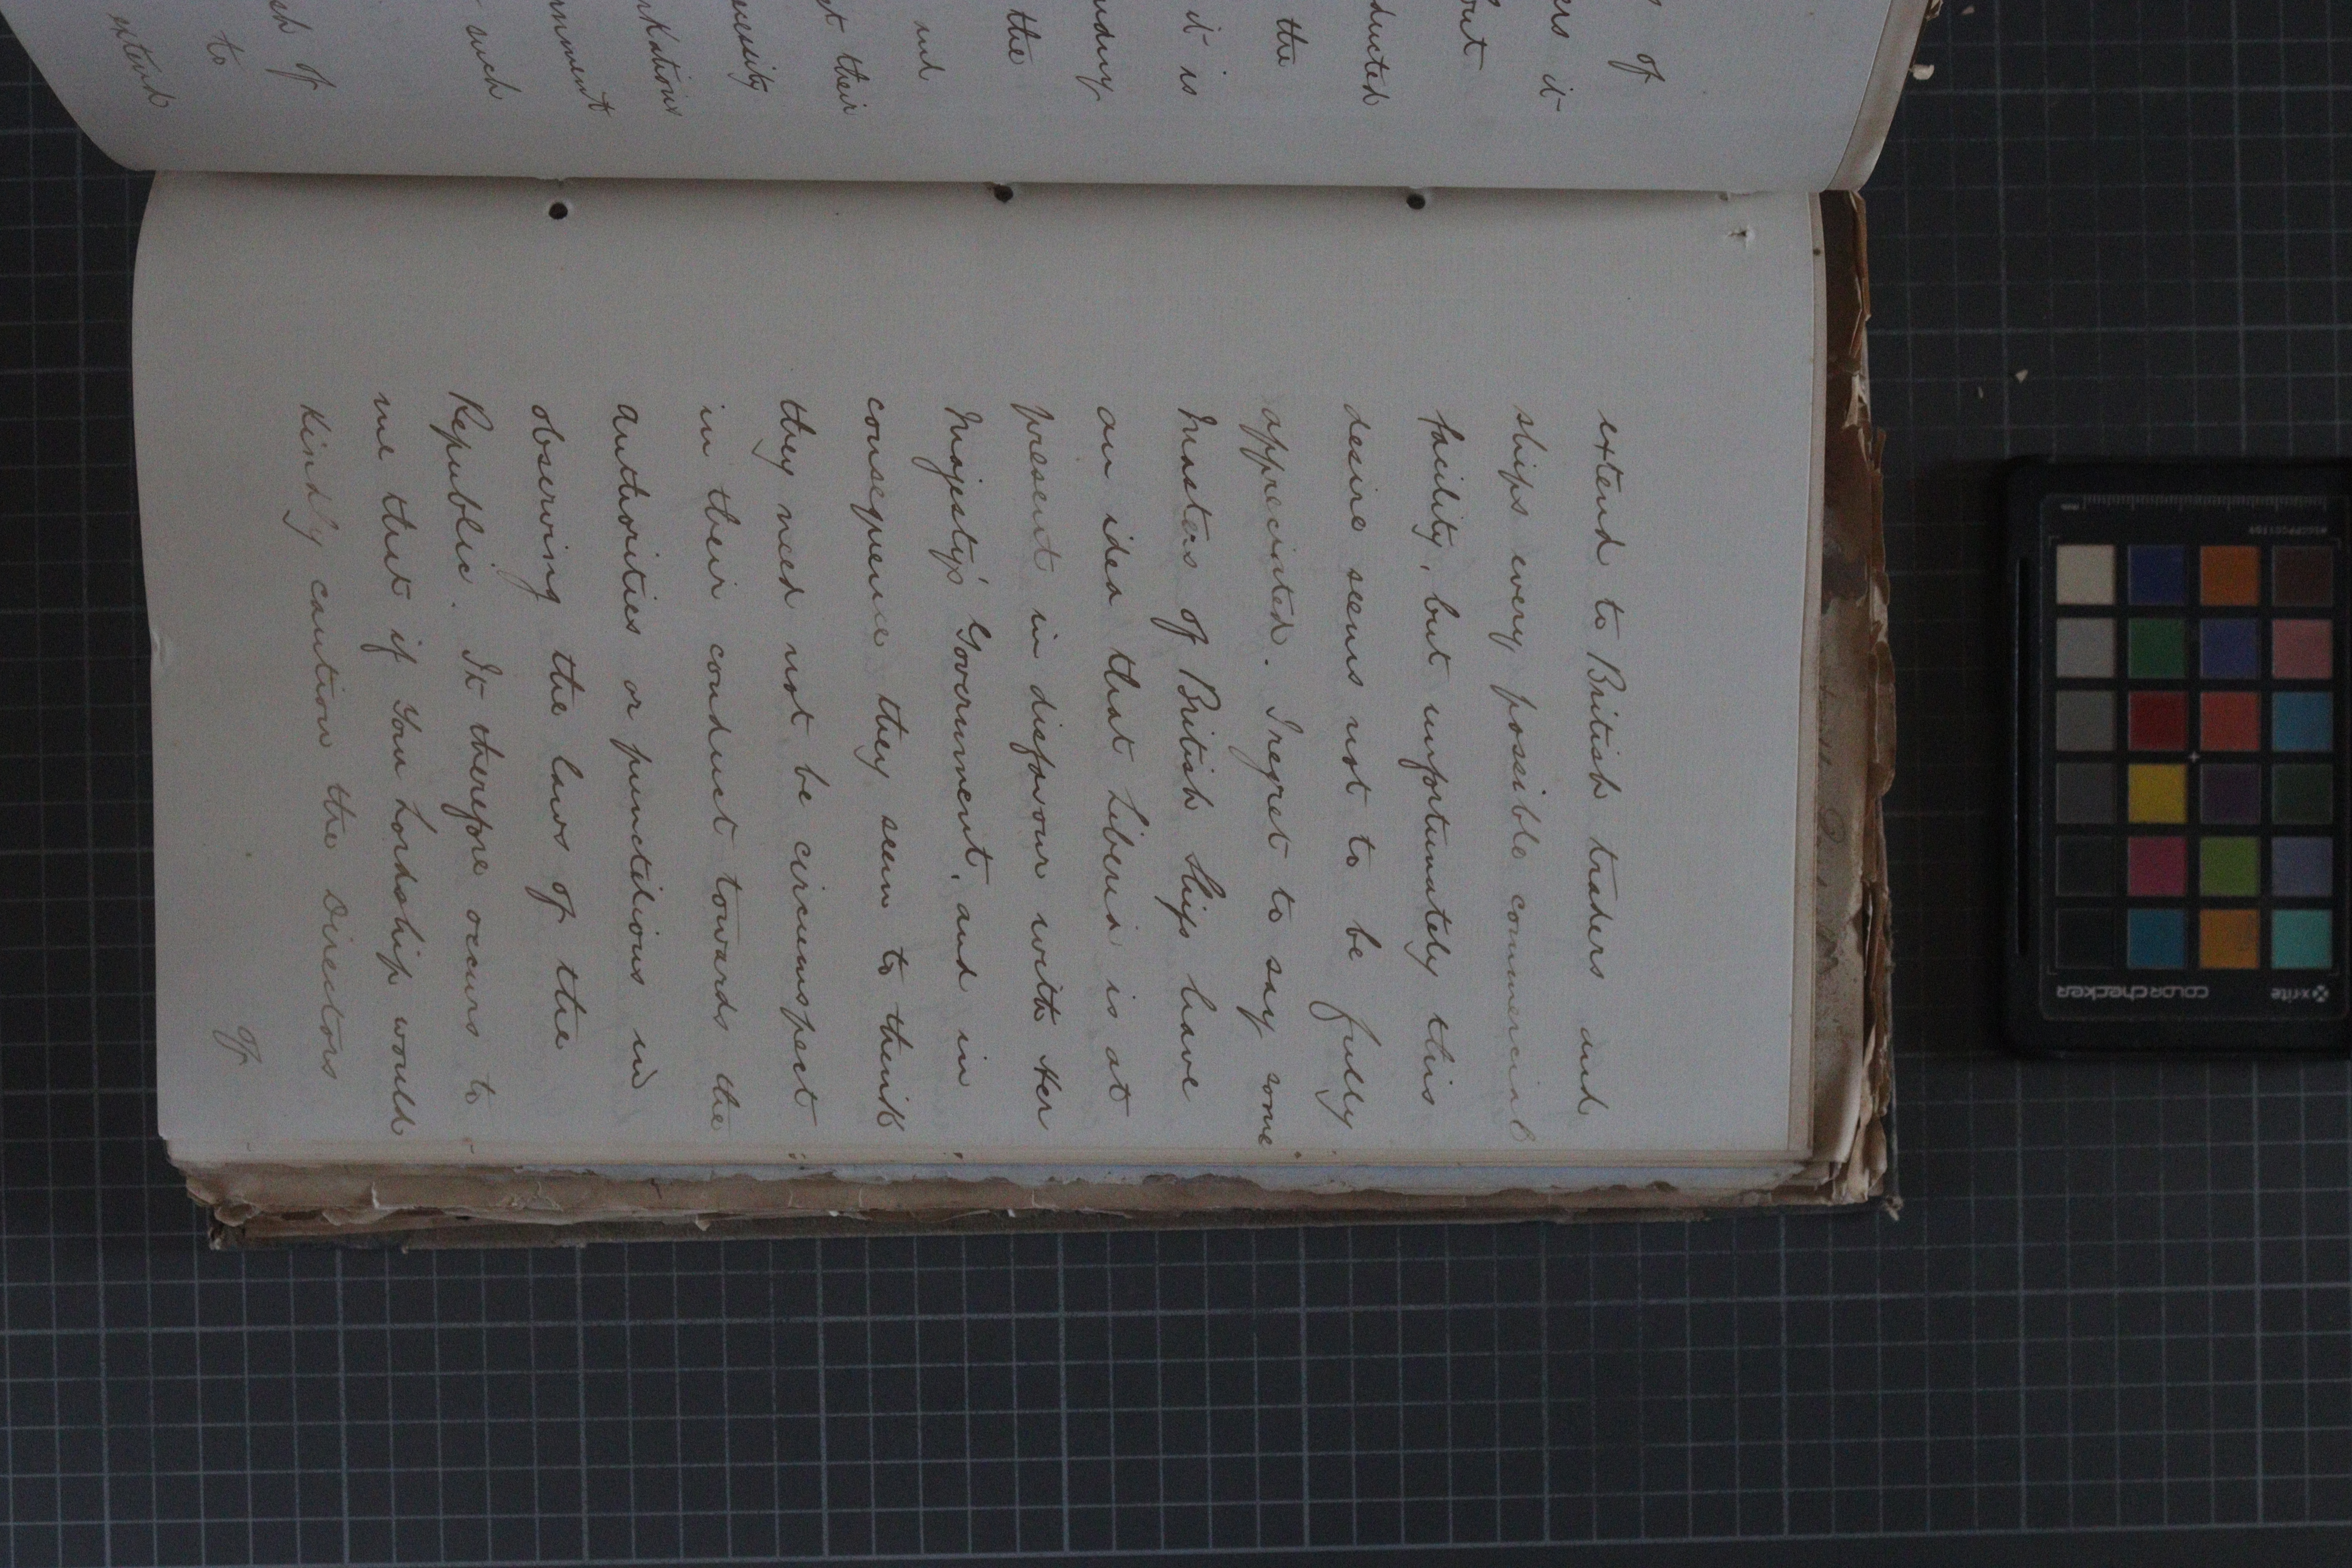 of
it
out
ducted
the
it is
the
and
their
such
of
to
extend
extend to British traders and
ships every possible commercial
facility, but unfortunately this
desire seems not to be fully
appreciated. I regret to say some
Masters of British Ships have
an idea that Liberia is at
present in disfavour with Her
Majesty's Government, and in
consequence they seem to think
they need not be circumspect
in their conduct towards the
authorities or punctilious in
observing the laws of the
Republic. It therefore occurs to
me that if Your Lordship would
kindly caution the Directors
of
x-rite
colorchecker